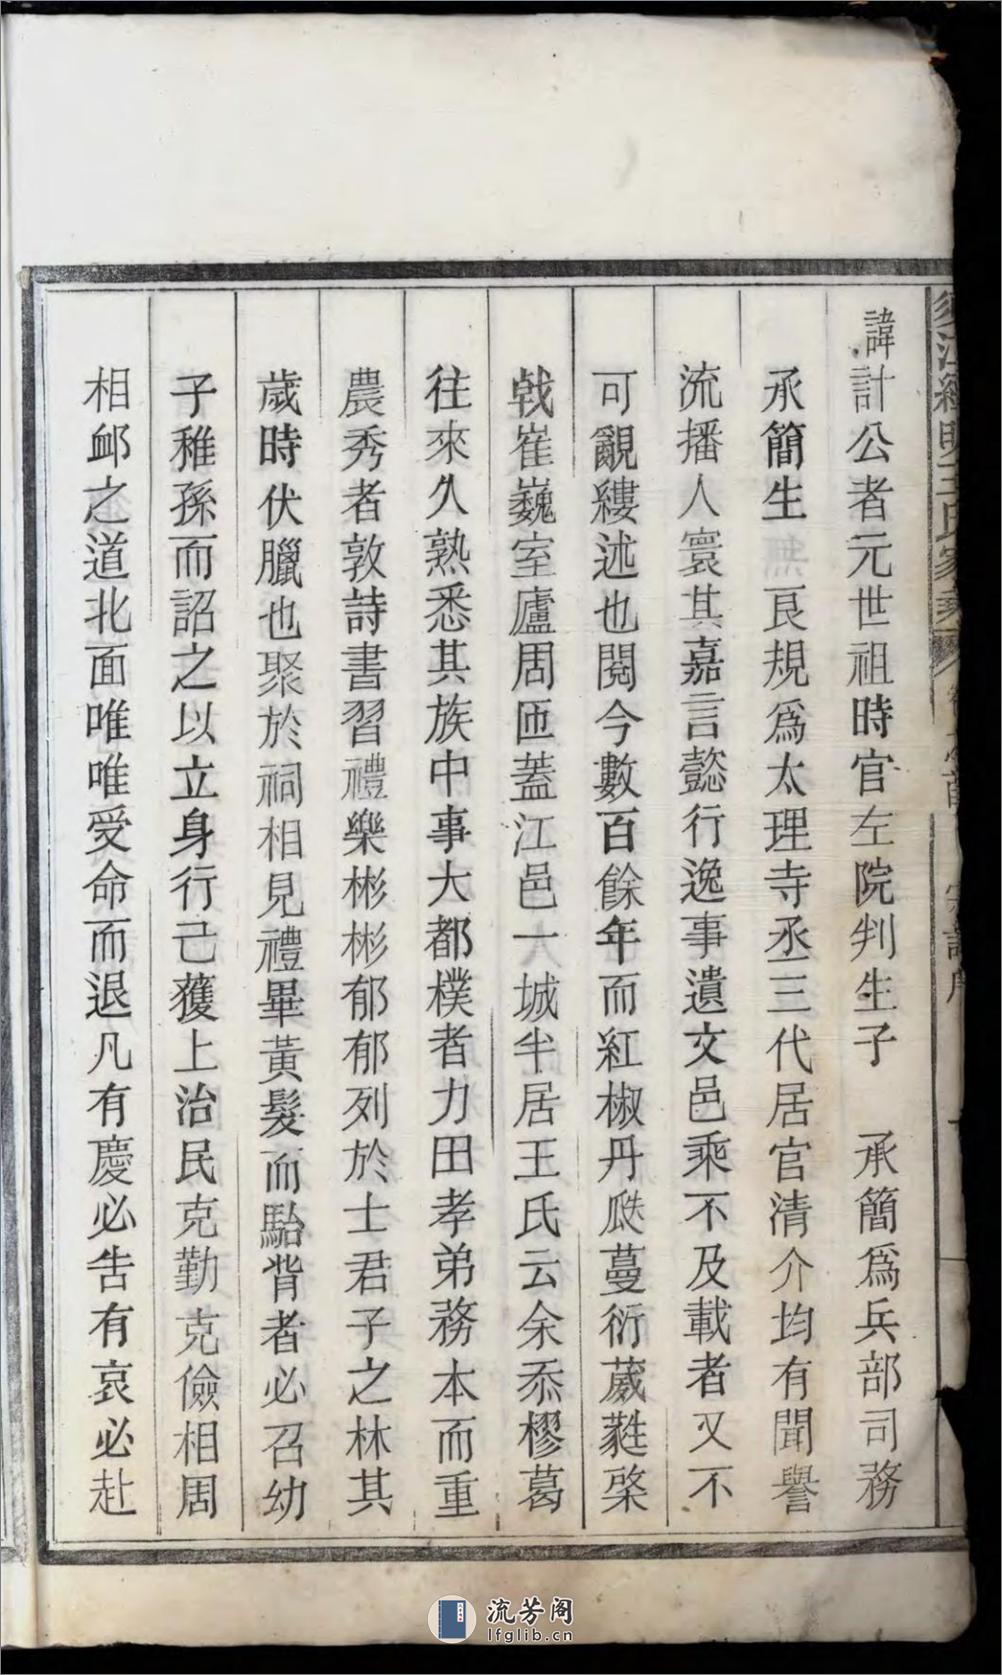 諱計公者元世祖時官左院判生子　承簡爲兵部司務
承簡生　良規爲太理寺丞三代居官清介均有聞譽
流播人寰其嘉言懿行逸事遺文邑乘不及載者又不
可覼縷述也閱今數百餘年而紅椒丹瓞蔓衍葳蕤棨
戟崔巍室廬周匝蓋江邑一大城半居王氏云余忝樛葛
往來久熟悉其族中事大都樸者力田孝弟務本而重
農秀者敦詩書習禮樂彬彬郁郁列於士君子之林其
歲時伏臘也聚於祠相見禮畢黃髮而駘背者必召幼
子稚孫而詔之以立身行己獲上治民克勤克儉相周
相卹之道北面唯唯受命而退凡有慶必告有哀必赴
王氏家乘
流芳阁
lfglib.cn